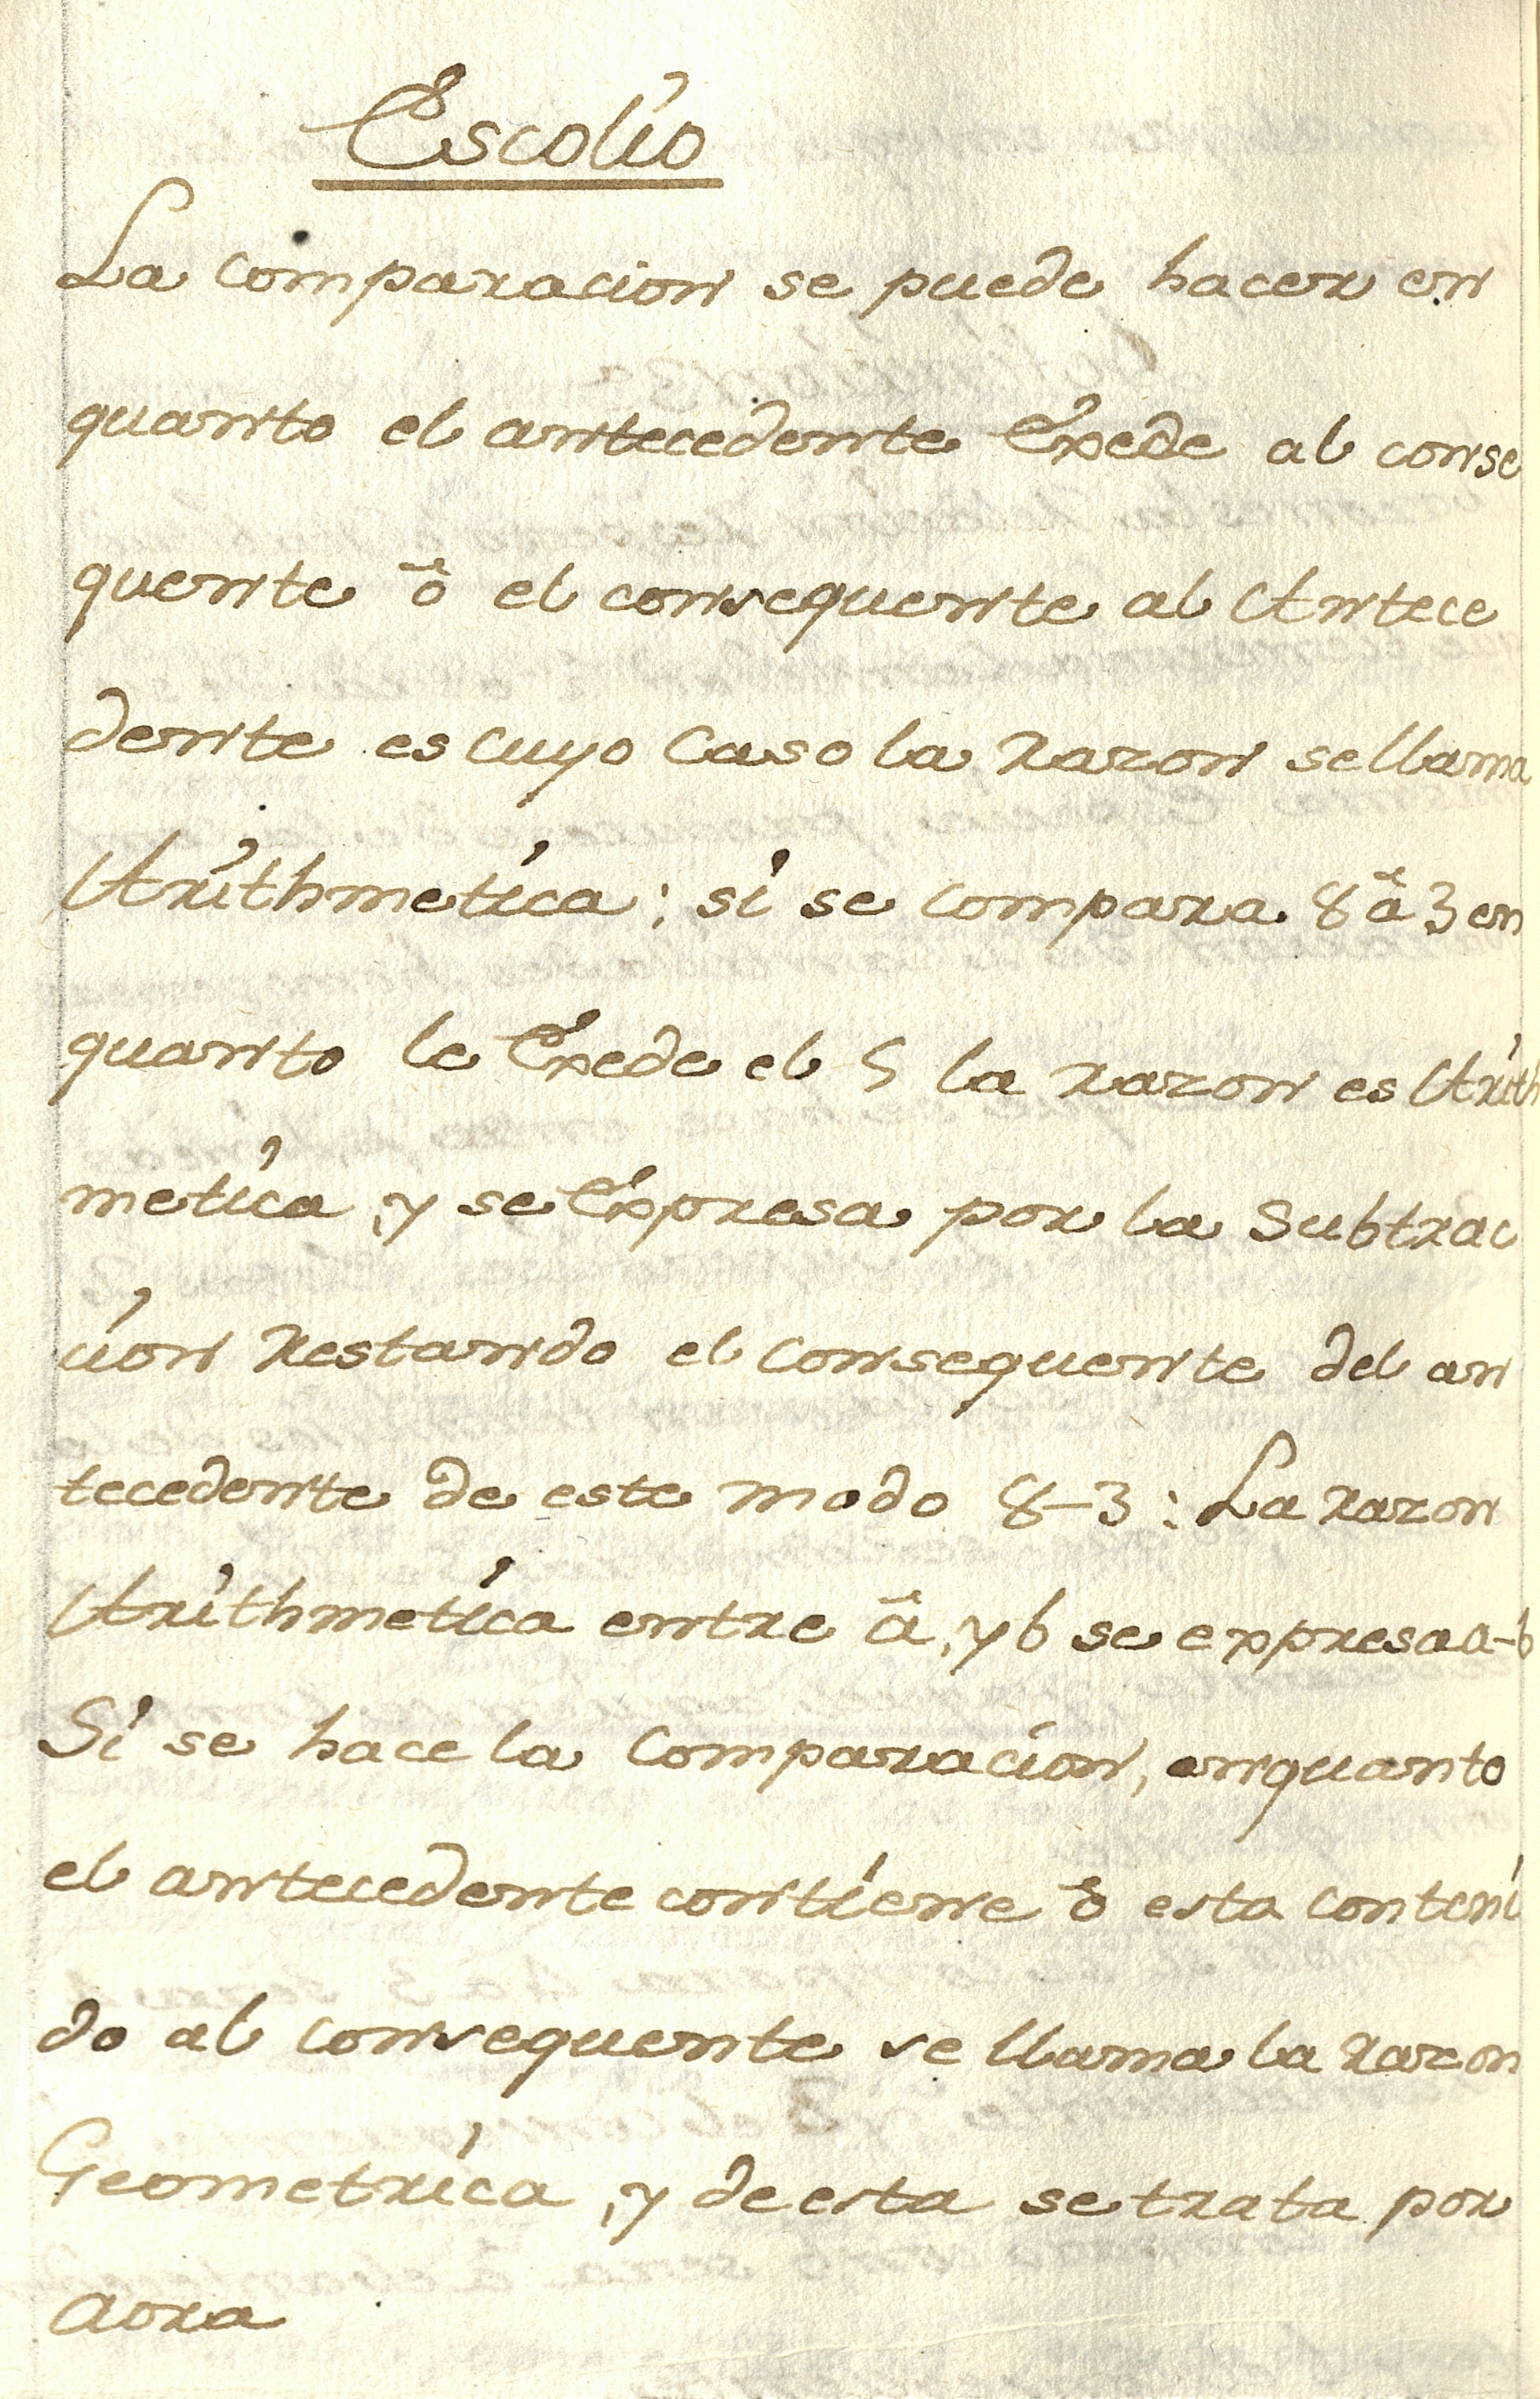 Escolio
La comparacion se puede hacer en
quanto el antecedente Exede al conse
quente ô el consequente al Antece
dente es cuyo caso la razon se llama
Arithmetica: si se compara 8 â 3 en
quanto le Exede el 5 la razon es Arith
metica, y se Expresa por la Subtrac
cion restando el consequente del an
tecedente de este modo 8-3: La razon
Arithmetica entre â, y b se expresa a-b
Si se hace la Comparacion, enquanto
el antecedente contiene ô esta conteni
do al consequente se llama la razon
Geometrica, y de esta se trata por
aora